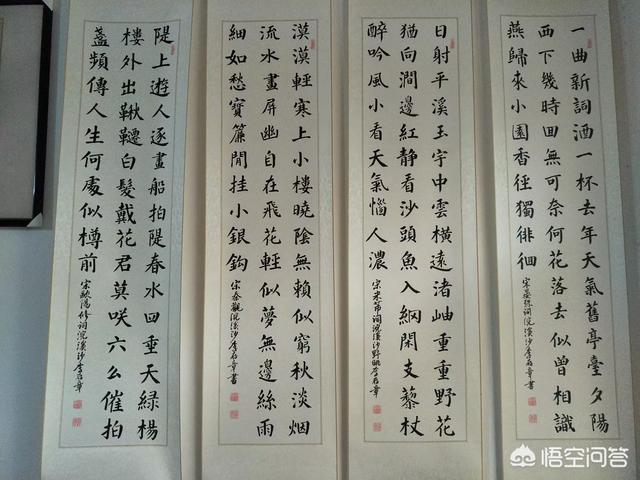 一曲新詞酒一杯去年天氣舊亭臺夕陽
西下幾時囬無可奈何花落去似曾相識
燕歸來小園香徑獨徘徊
宋晏殊詞浣溪沙李章書
日射平溪玉宇中雲橫遠渚岫重重野花
猶向澗邊紅静看沙頭魚入網閑支藜杖
醉吟風小看天氣惱人濃
宋米芾詞浣溪沙野眺李章
漠漠輕寒上小樓曉陰無賴似窮秋淡烟
流水畫屏幽自在飛花輕似夢無邊絲雨
細如愁寶簾閒挂小銀鈎
宋秦觀浣溪沙李章書
隄上遊人逐畫船拍隄春水四垂天綠楊
樓外出鞦韆白髮戴花君莫咲六么催拍
盞頻傳人生何處似樽前
宋歐陽修詞浣溪沙李章
悟空问答